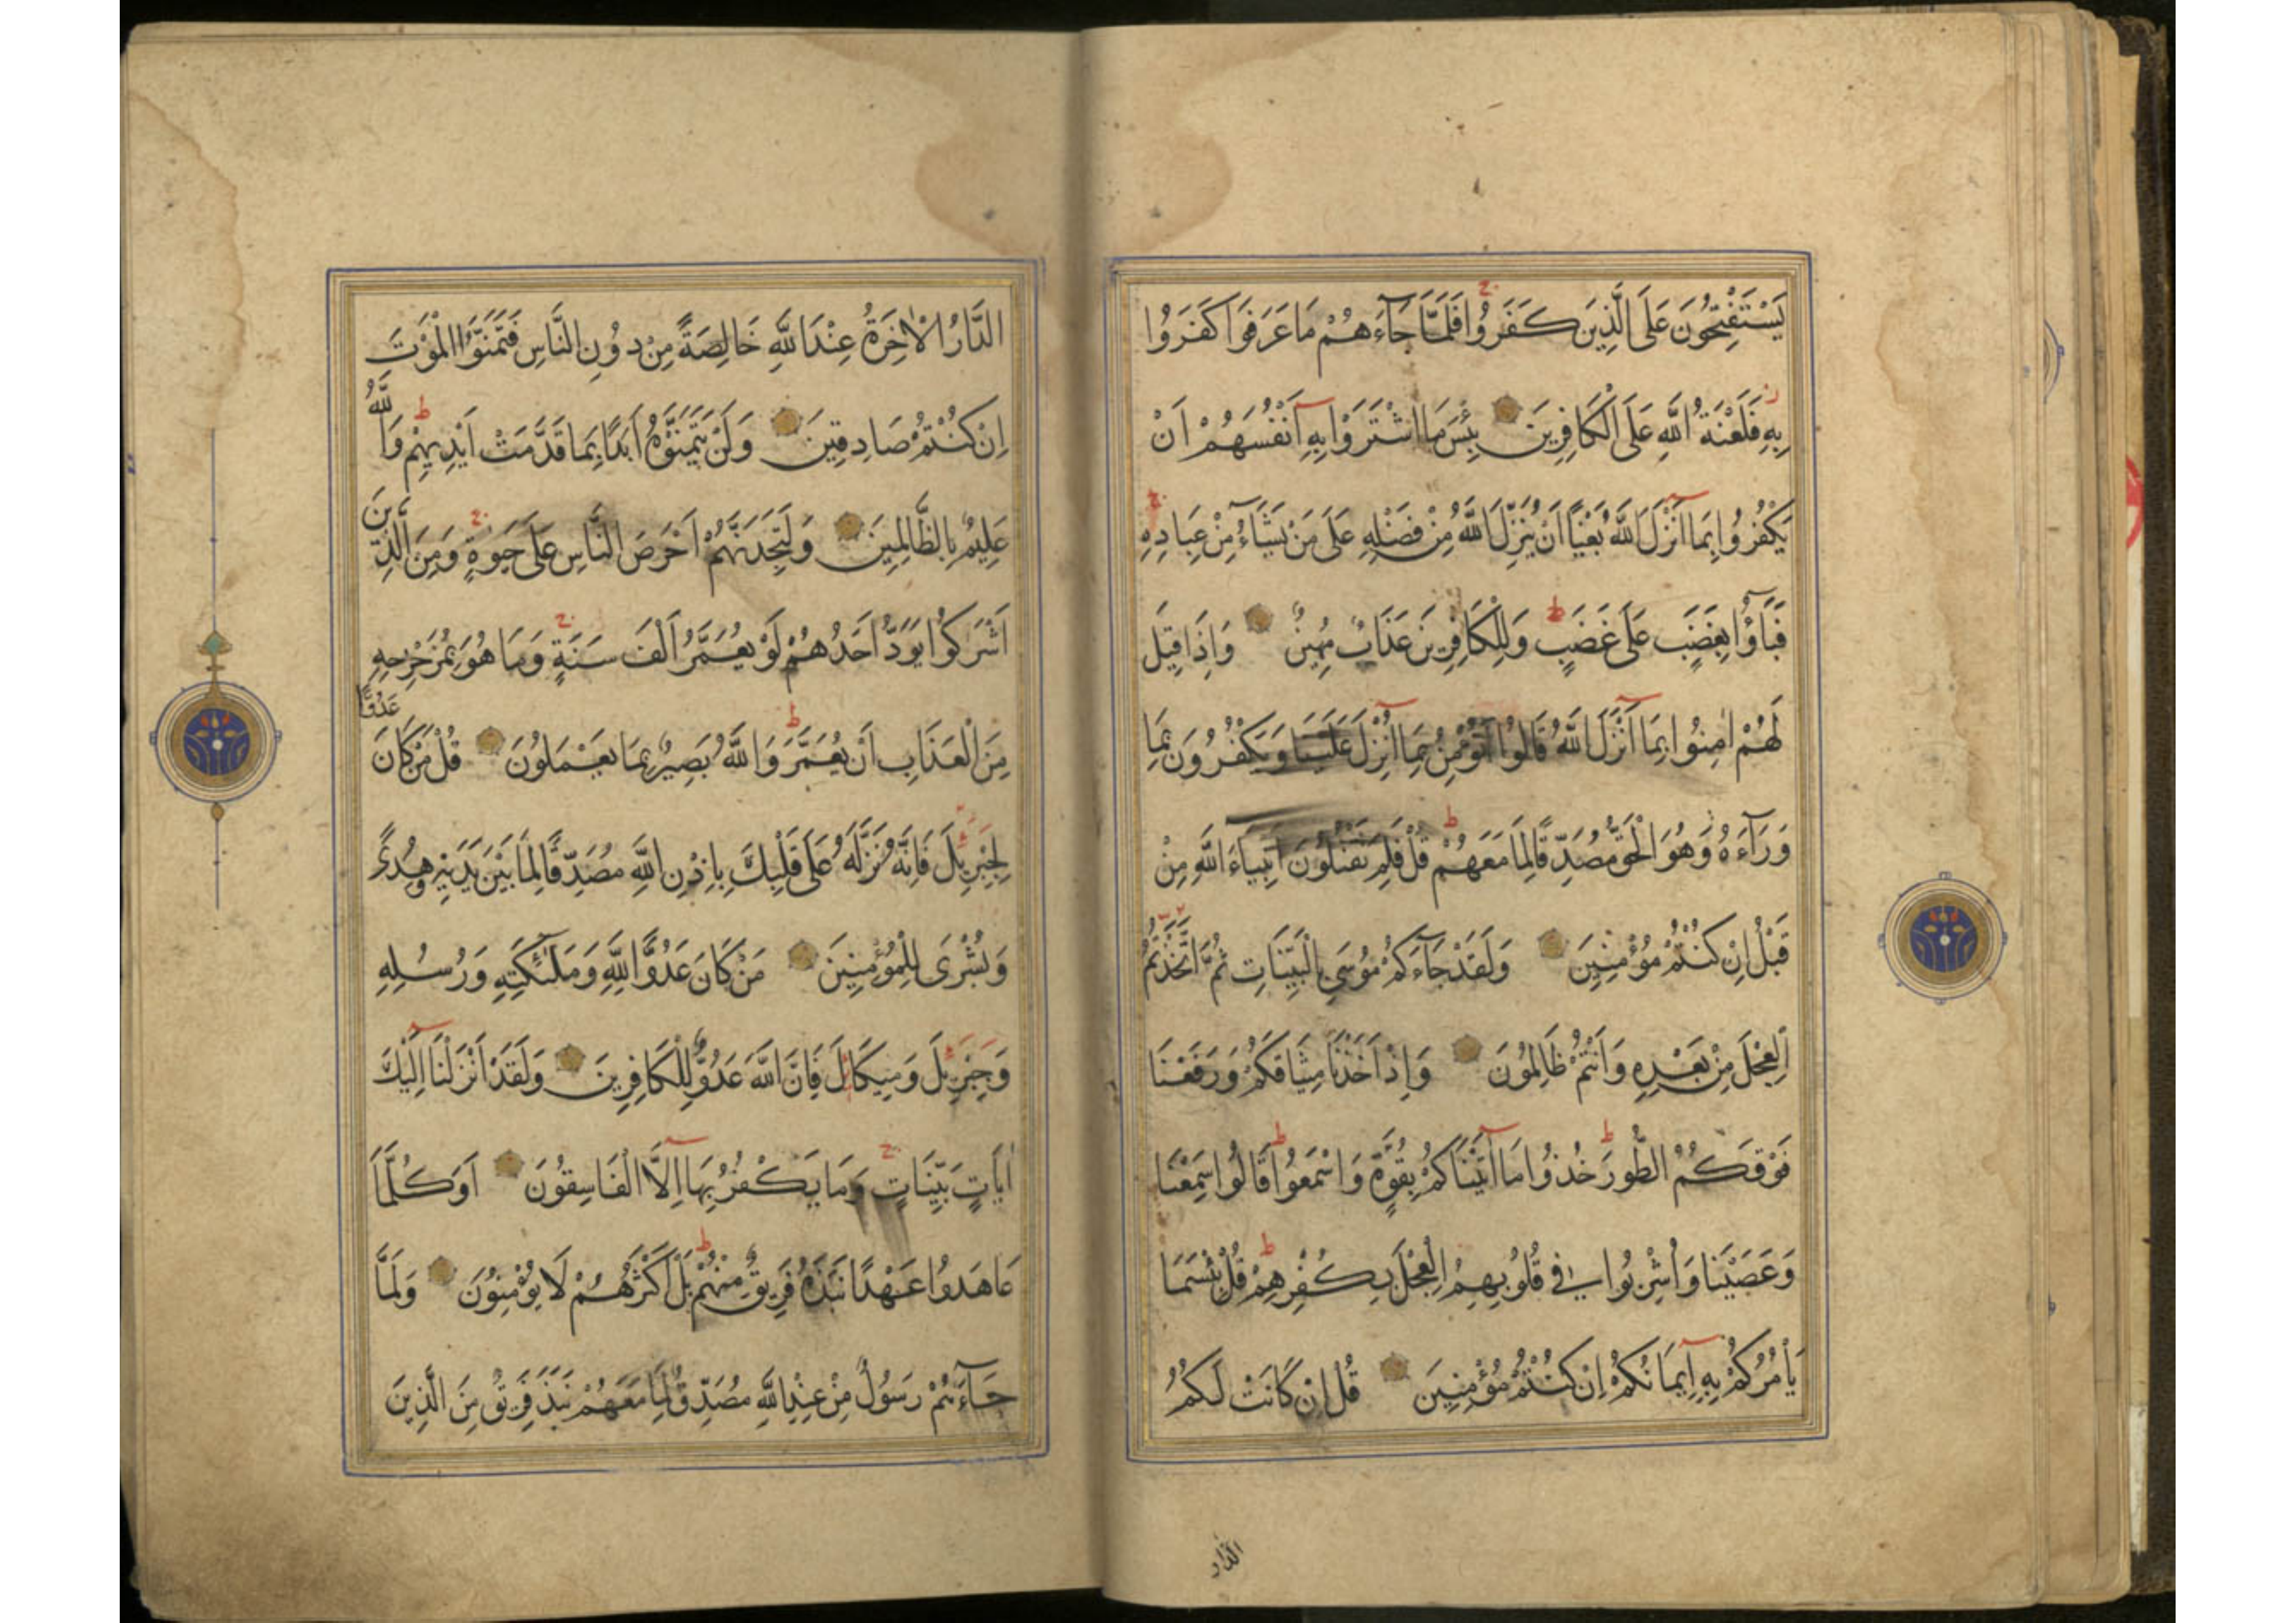 يَسْتَفْتِحُونَ عَلَى الَّذِينَ كَفَرُوا فَلَمَّا جَآءَهُمْ مَا عَرَفُوا كَفَرُوا
بِهِ فَلَعْنَةُ اللَّهِ عَلَى الْكَافِرِينَ بِئْسَ مَا اشْتَرَوْا بِهِ أَنْفُسَهُمْ أَنْ
يَكْفُرُوا بِمَا أَنْزَلَ اللَّهُ بَغْيًا أَنْ يُنَزِّلَ اللَّهُ مِنْ فَضْلِهِ عَلَى مَنْ يَشَآءُ مِنْ عِبَادِهِ
فَبَآؤُا بِغَضَبٍ عَلَى غَضَبٍ وَلِلْكَافِرِينَ عَذَابٌ مُهِينٌ وَإِذَا قِيلَ
لَهُمْ اٰمِنُوا بِمَا أَنْزَلَ اللَّهُ قَالُوا نُؤْمِنُ بِمَا أُنْزِلَ عَلَيْنَا وَيَكْفُرُونَ بِمَا
وَرَآءَهُ وَهُوَ الْحَقُّ مُصَدِّقًا لِمَا مَعَهُمْ قُلْ فَلِمَ تَقْتُلُونَ أَنْبِيَاءَ اللَّهِ مِنْ
قَبْلُ إِنْ كُنْتُمْ مُؤْمِنِينَ وَلَقَدْ جَآءَكُمْ مُوسَى بِالْبَيِّنَاتِ ثُمَّ اتَّخَذْتُمُ
الْعِجْلَ مِنْ بَعْدِهِ وَأَنْتُمْ ظَالِمُونَ وَإِذْ أَخَذْنَا مِيثَاقَكُمْ وَرَفَعْنَا
فَوْقَكُمُ الطُّورَ خُذُوا مَا آتَيْنَاكُمْ بِقُوَّةٍ وَاسْمَعُوا قَالُوا سَمِعْنَا
وَعَصَيْنَا وَأُشْرِبُوا فِي قُلُوبِهِمُ الْعِجْلَ بِكُفْرِهِمْ قُلْ بِئْسَمَا
يَأْمُرُكُمْ بِهِ إِيمَانُكُمْ إِنْ كُنْتُمْ مُؤْمِنِينَ قُلْ إِنْ كَانَتْ لَكُمُ
الدار
الدَّارُ الْاٰخِرَةُ عِنْدَ اللَّهِ خَالِصَةً مِنْ دُونِ النَّاسِ فَتَمَنَّوُا الْمَوْتَ
إِنْ كُنْتُمْ صَادِقِينَ وَلَنْ يَتَمَنَّوْهُ أَبَدًا بِمَا قَدَّمَتْ أَيْدِيهِمْ وَاللَّهُ
عَلِيمٌ بِالظَّالِمِينَ وَلَتَجِدَنَّهُمْ أَحْرَصَ النَّاسِ عَلَى حَيٰوةٍ وَمِنَ الَّذِينَ
أَشْرَكُوا يَوَدُّ أَحَدُهُمْ لَوْ يُعَمَّرُ أَلْفَ سَنَةٍ وَمَا هُوَ بِمُزَحْزِحِهِ
مِنَ الْعَذَابِ أَنْ يُعَمَّرَ وَاللَّهُ بَصِيرٌ بِمَا يَعْمَلُونَ قُلْ مَنْ كَانَ عَدُوًّا
لِجِبْرِيلَ فَإِنَّهُ نَزَّلَهُ عَلَى قَلْبِكَ بِإِذْنِ اللَّهِ مُصَدِّقًا لِمَا بَيْنَ يَدَيْهِ وَهُدًى
وَبُشْرَى لِلْمُؤْمِنِينَ مَنْ كَانَ عَدُوًّا لِلَّهِ وَمَلٰئِكَتِهِ وَرُسُلِهِ
وَجِبْرِيلَ وَمِيكَالَ فَإِنَّ اللَّهَ عَدُوٌّ لِلْكَافِرِينَ وَلَقَدْ أَنْزَلْنَا إِلَيْكَ
اٰيَاتٍ بَيِّنَاتٍ وَمَا يَكْفُرُ بِهَا إِلَّا الْفَاسِقُونَ أَوَكُلَّمَا
عَاهَدُوا عَهْدًا نَبَذَهُ فَرِيقٌ مِنْهُمْ بَلْ أَكْثَرُهُمْ لَا يُؤْمِنُونَ وَلَمَّا
جَآءَهُمْ رَسُولٌ مِنْ عِنْدِ اللَّهِ مُصَدِّقٌ لِمَا مَعَهُمْ نَبَذَ فَرِيقٌ مِنَ الَّذِينَ